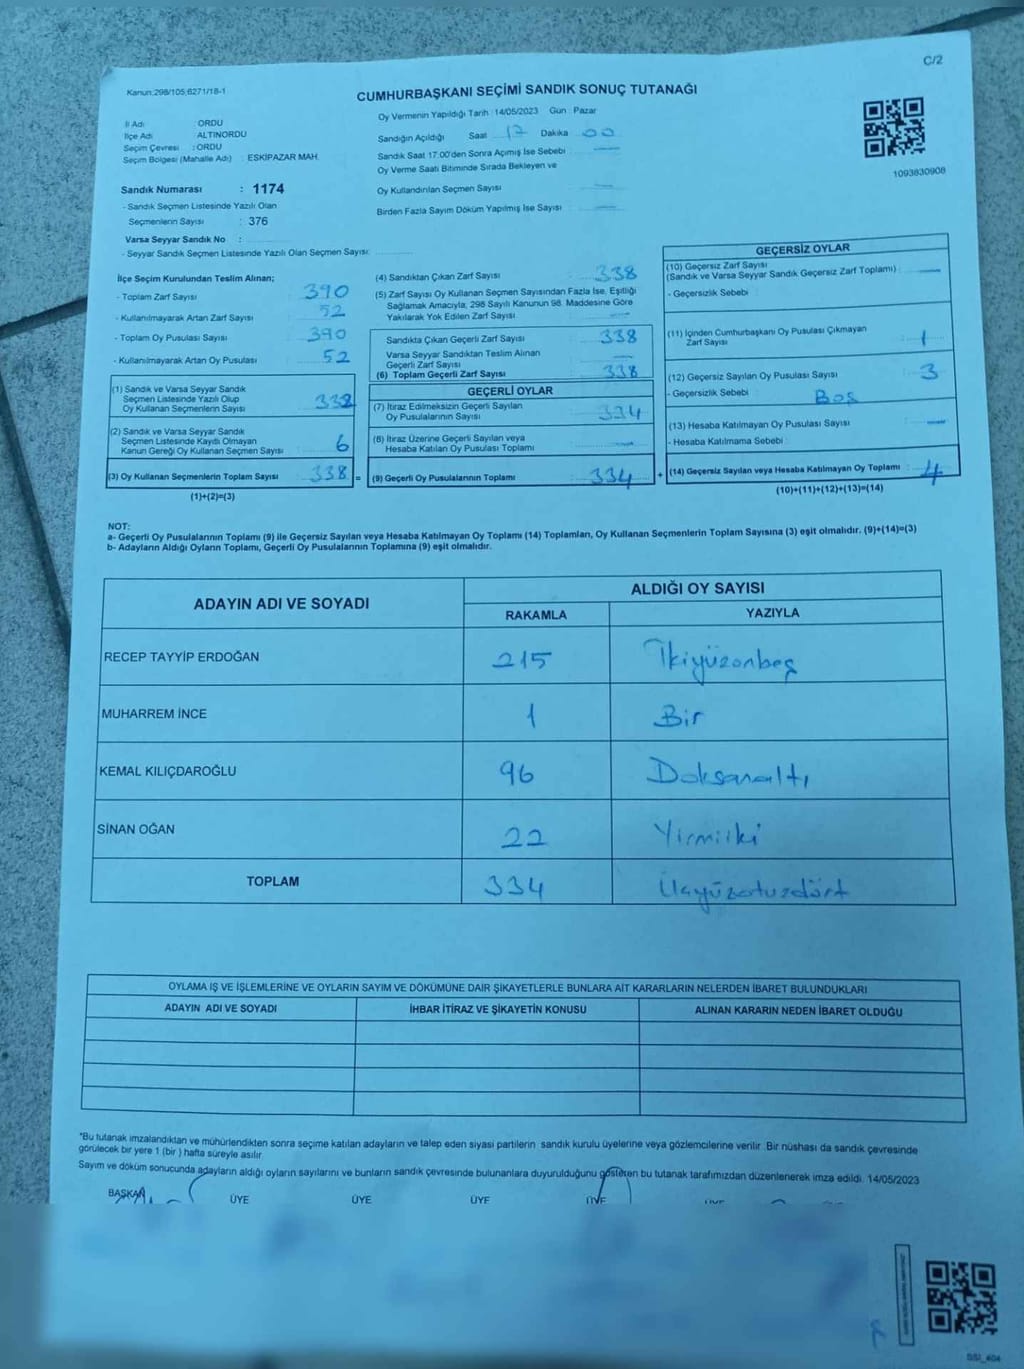 C/2
Kanun:298/105;6271/18-1
CUMHURBAŞKANI SEÇİMİ SANDIK SONUÇ TUTANAĞI
İl Adı : ORDU
İlçe Adı : ALTINORDU
Seçim Çevresi : ORDU
Seçim Bölgesi (Mahalle Adı) : ESKİPAZAR MAH.
Sandık Numarası : 1174
- Sandık Seçmen Listesinde Yazılı Olan
Seçmenlerin Sayısı : 376
Varsa Seyyar Sandık No :
- Seyyar Sandık Seçmen Listesinde Yazılı Olan Seçmen Sayısı:
Oy Vermenin Yapıldığı Tarih : 14/05/2023 Gün : Pazar
Sandığın Açıldığı Saat 17 Dakika 00
Sandık Saat 17:00'den Sonra Açımış İse Sebebi : —
Oy Verme Saati Bitiminde Sırada Bekleyen ve
Oy Kullandırılan Seçmen Sayısı : —
Birden Fazla Sayım Döküm Yapılmış İse Sayısı : —
1093830908
İlçe Seçim Kurulundan Teslim Alınan;
- Toplam Zarf Sayısı : 390
- Kullanılmayarak Artan Zarf Sayısı : 52
- Toplam Oy Pusulası Sayısı : 390
- Kullanılmayarak Artan Oy Pusulası : 52
(1) Sandık ve Varsa Seyyar Sandık
Seçmen Listesinde Yazılı Olup
Oy Kullanan Seçmenlerin Sayısı : 332
(2) Sandık ve Varsa Seyyar Sandık
Seçmen Listesinde Kaydı Olmayan
Kanun Gereği Oy Kullanan Seçmen Sayısı : 6
(3) Oy Kullanan Seçmenlerin Toplam Sayısı : 338 =
(1)+(2)=(3)
(4) Sandıktan Çıkan Zarf Sayısı : 338
(5) Zarf Sayısı Oy Kullanan Seçmen Sayısından Fazla İse, Eşitliği
Sağlamak Amacıyla, 298 Sayılı Kanunun 98. Maddesine Göre
Yakılarak Yok Edilen Zarf Sayısı : —
Sandıkta Çıkan Geçerli Zarf Sayısı : 338
Varsa Seyyar Sandıktan Teslim Alınan
Geçerli Zarf Sayısı : —
(6) Toplam Geçerli Zarf Sayısı : 338
GEÇERLİ OYLAR
(7) İtiraz Edilmeksizin Geçerli Sayılan
Oy Pusulalarının Sayısı : 334
(8) İtiraz Üzerine Geçerli Sayılan veya
Hesaba Katılan Oy Pusulası Toplamı : —
(9) Geçerli Oy Pusulalarının Toplamı : 334 +
GEÇERSİZ OYLAR
(10) Geçersiz Zarf Sayısı
(Sandık ve Varsa Seyyar Sandık Geçersiz Zarf Toplamı) : —
- Geçersizlik Sebebi :
(11) İçinden Cumhurbaşkanı Oy Pusulası Çıkmayan
Zarf Sayısı : 1
(12) Geçersiz Sayılan Oy Pusulası Sayısı : 3
- Geçersizlik Sebebi : Boş
(13) Hesaba Katılmayan Oy Pusulası Sayısı : —
- Hesaba Katılmama Sebebi :
(14) Geçersiz Sayılan veya Hesaba Katılmayan Oy Toplamı : 4
(10)+(11)+(12)+(13)=(14)
NOT:
a- Geçerli Oy Pusulalarının Toplamı (9) ile Geçersiz Sayılan veya Hesaba Katılmayan Oy Toplamı (14) Toplamları, Oy Kullanan Seçmenlerin Toplam Sayısına (3) eşit olmalıdır. (9)+(14)=(3)
b- Adayların Aldığı Oyların Toplamı, Geçerli Oy Pusulalarının Toplamına (9) eşit olmalıdır.
ADAYIN ADI VE SOYADI ALDIĞI OY SAYISI
RAKAMLA YAZIYLA
RECEP TAYYİP ERDOĞAN 215 İkiyüzonbeş
MUHARREM İNCE 1 Bir
KEMAL KILIÇDAROĞLU 96 Doksanaltı
SİNAN OĞAN 22 Yirmiiki
TOPLAM 334 Üçyüzotuzdört
OYLAMA İŞ VE İŞLEMLERİNE VE OYLARIN SAYIM VE DÖKÜMÜNE DAİR ŞİKAYETLERLE BUNLARA AİT KARARLARIN NELERDEN İBARET BULUNDUKLARI
ADAYIN ADI VE SOYADI İHBAR İTİRAZ VE ŞİKAYETİN KONUSU ALINAN KARARIN NEDEN İBARET OLDUĞU
*Bu tutanak imzalandıktan ve mühürlendikten sonra seçime katılan adayların ve talep eden siyasi partilerin sandık kurulu üyelerine veya gözlemcilerine verilir. Bir nüshası da sandık çevresinde
görülecek bir yere 1 (bir) hafta süreyle asılır.
Sayım ve döküm sonucunda adayların aldığı oyların sayılarını ve bunların sandık çevresinde bulunanlara duyurulduğunu gösteren bu tutanak tarafımızdan düzenlenerek imza edildi. 14/05/2023
BAŞKAN ÜYE ÜYE ÜYE ÜYE ÜYE